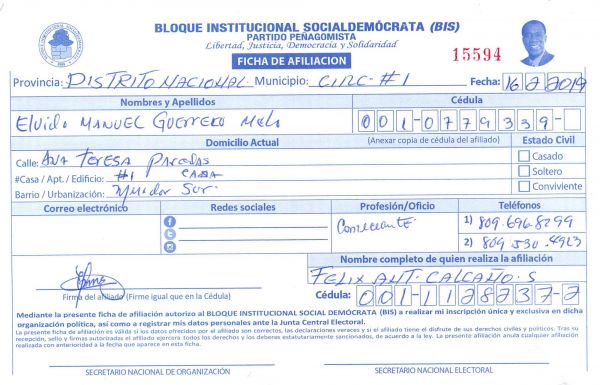 BLOQUE INSTITUCIONAL SOCIALDEMÓCRATA (BIS)
PARTIDO PEÑAGOMISTA
Libertad, Justicia, Democracia y Solidaridad
FICHA DE AFILIACION
15594
Provincia: DISTRITO NACIONAL Municipio: CIRC-#1 Fecha: 16/2/2019
Nombres y Apellidos Cédula
Elvido MANUEL GUERRERO 001-0779339-
Domicilio Actual (Anexar copia de cédula del afiliado) Estado Civil
Calle: ANA TERESA PAREDAS
#Casa / Apt. / Edificio: #1 CASA
Barrio / Urbanización: Mirador Sur
Casado
Soltero
Conviviente
Correo electrónico Redes sociales Profesión/Oficio Teléfonos
Comerciante
1) 809.696.8299
2) 809 530.4923
Nombre completo de quien realiza la afiliación
FELIX ANT. CALCAÑO. S
Firma del afiliado (Firme igual que en la Cédula)
Cédula: 001-1128237-2
Mediante la presente ficha de afiliación autorizo al BLOQUE INSTITUCIONAL SOCIAL DEMÓCRATA (BIS) a realizar mi inscripción única y exclusiva en dicha
organización política, así como a registrar mis datos personales ante la Junta Central Electoral.
La presente ficha de afiliación es válida si los datos ofrecidos por el afiliado son correctos, las declaraciones veraces y si el afiliado tiene el disfrute de sus derechos civiles y políticos. Tras su
recepción, sello y firmas autorizadas el afiliado ejercerá todos los derechos y los deberes estatutariamente sancionados, de acuerdo a la ley. La presente afiliación anula cualquier afiliación
realizada con anterioridad a la fecha que aparece en esta ficha.
SECRETARIO NACIONAL DE ORGANIZACIÓN SECRETARIO NACIONAL ELECTORAL